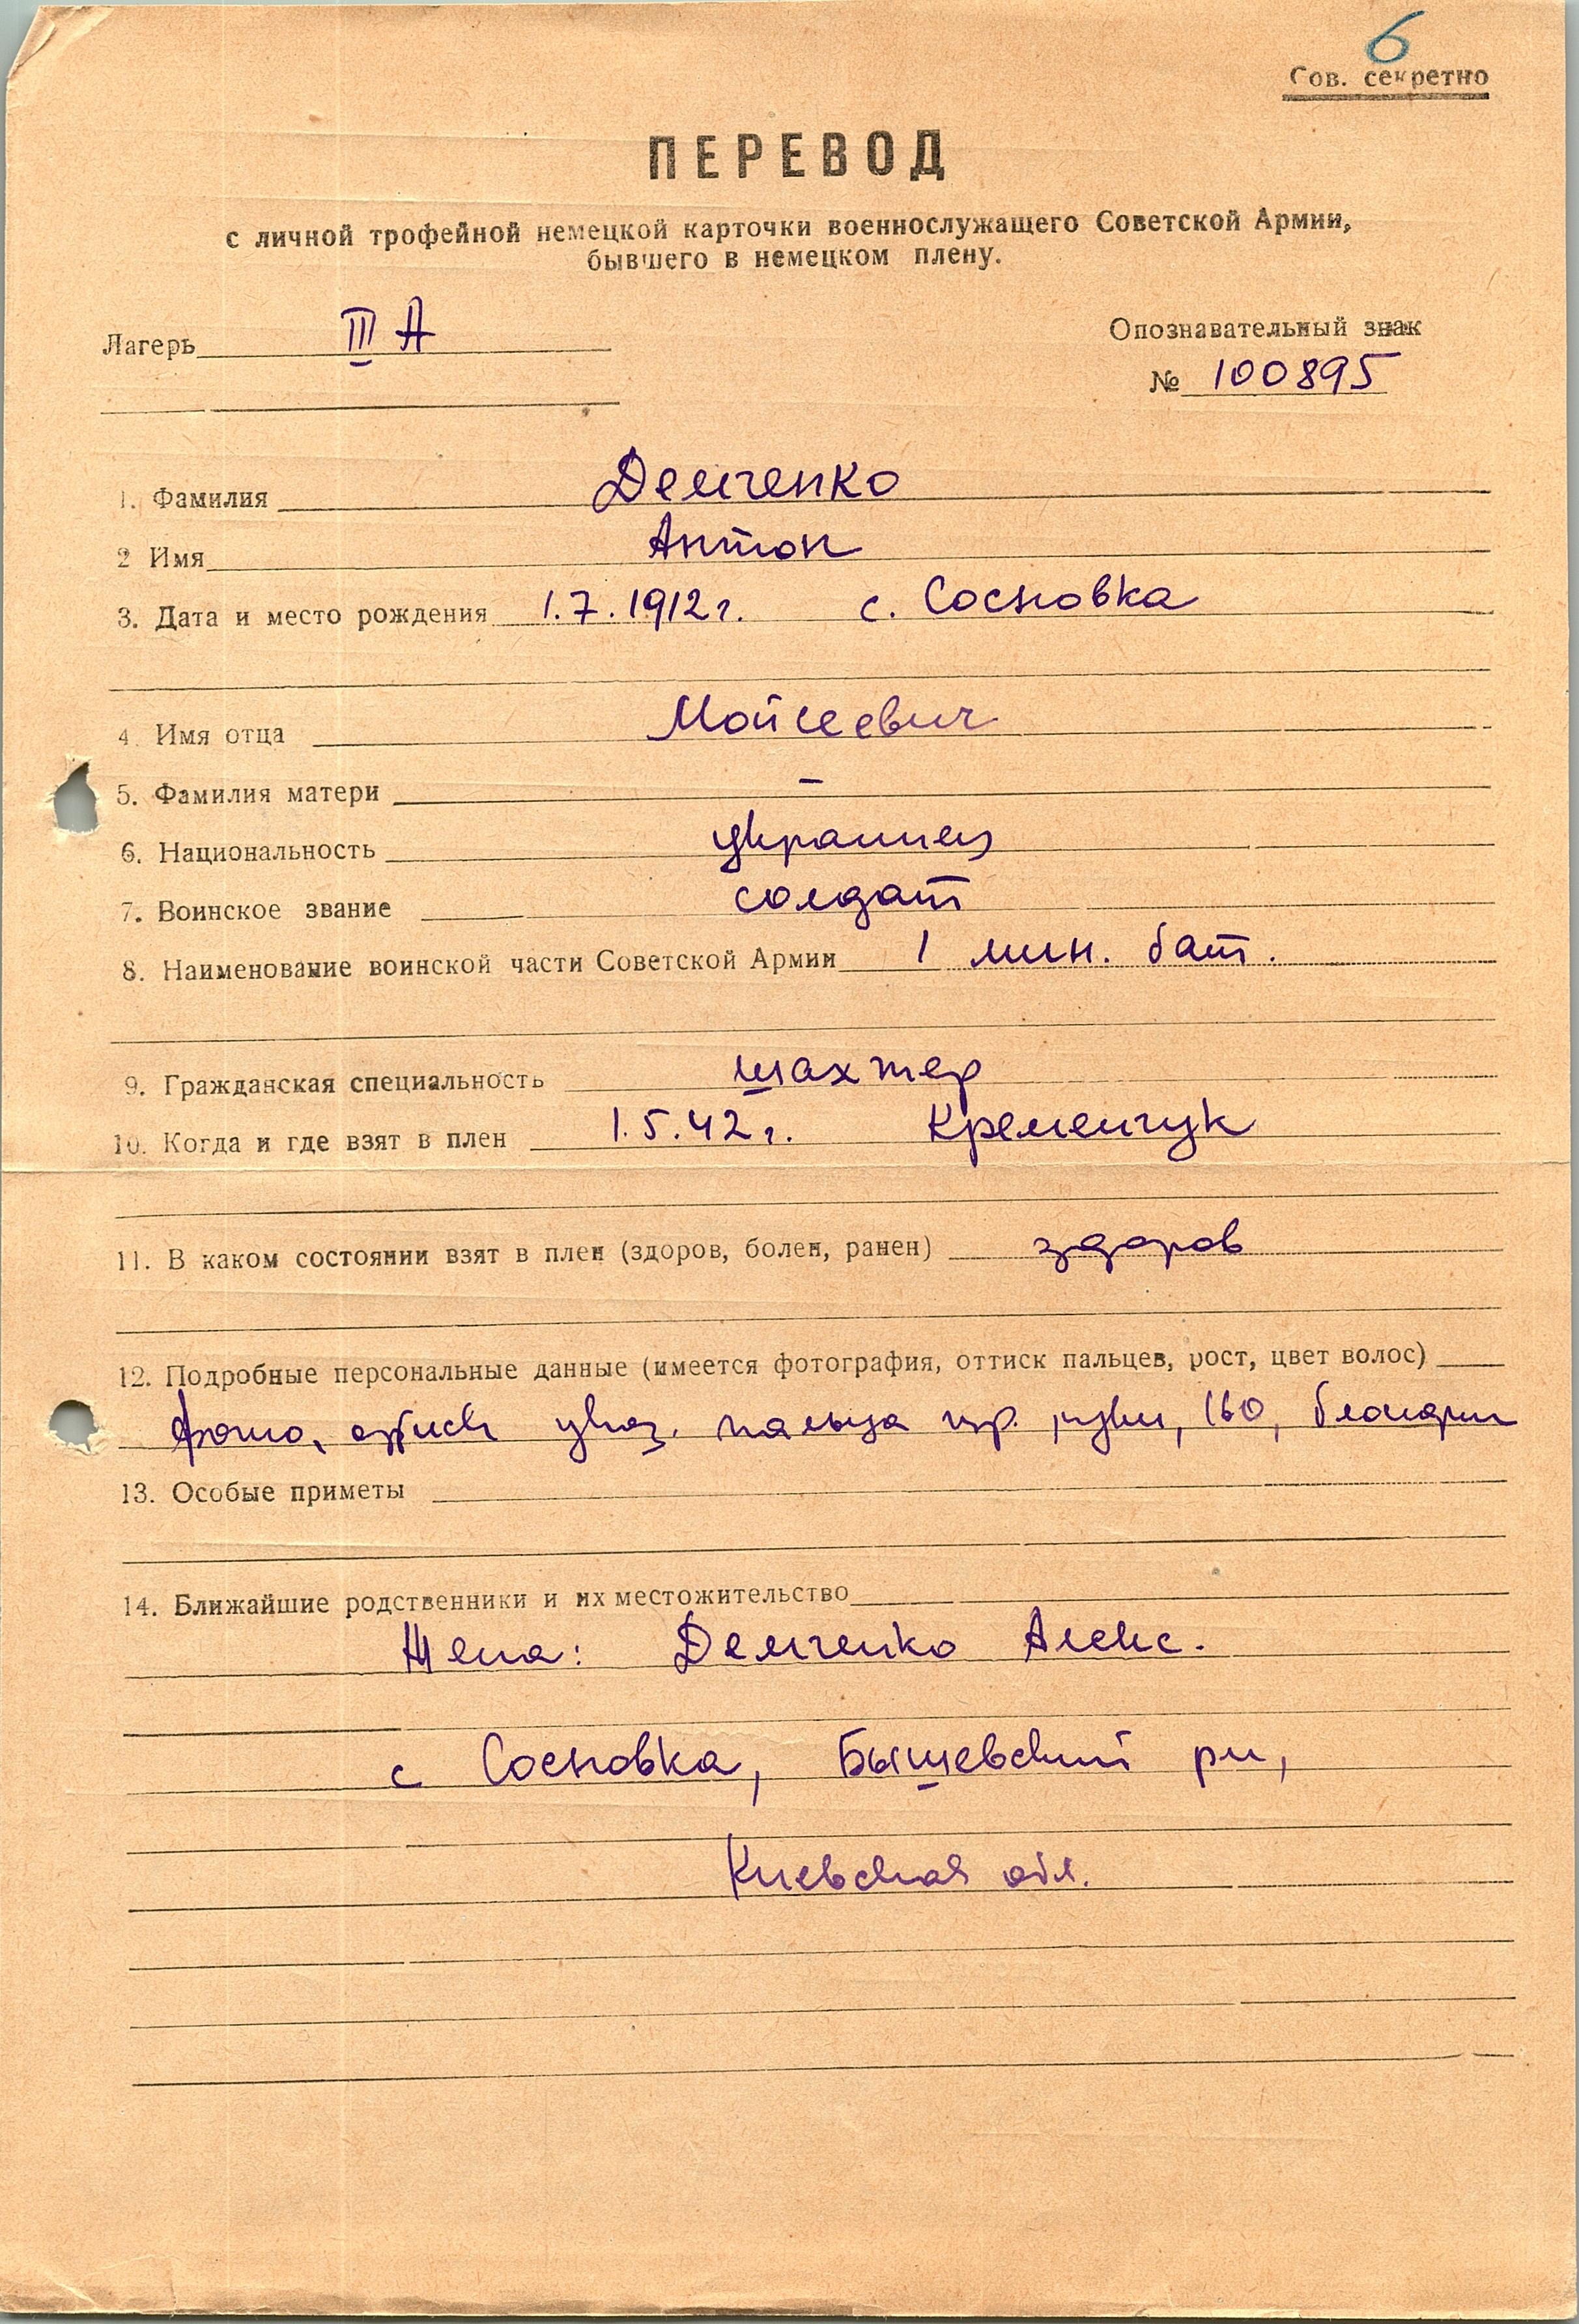 6
Сов. секретно
ПЕРЕВОД
с личной трофейной немецкой карточки военнослужащего Советской Армии,
бывшего в немецком плену.
Лагерь III А
Опознавательный знак
№ 100895
1. Фамилия Демченко
2 Имя Антон
3. Дата и место рождения 1.7.1912г. с. Сосновка
4. Имя отца Мойсеевич
5. Фамилия матери –
6. Национальность украинец
7. Воинское звание солдат
8. Наименование воинской части Советской Армии 1 мин. бат.
9. Гражданская специальность шахтер
10. Когда и где взят в плен 1.5.42г. Кременчук
11. В каком состоянии взят в плен (здоров, болен, ранен) здоров
12. Подробные персональные данные (имеется фотография, оттиск пальцев, рост, цвет волос)
фото, оттиск указ. пальца пр. руки, 160, блондин
13. Особые приметы
14. Ближайшие родственники и их местожительство
Жена: Демченко Алекс.
с Сосновка, Бышевский рн,
Киевская обл.